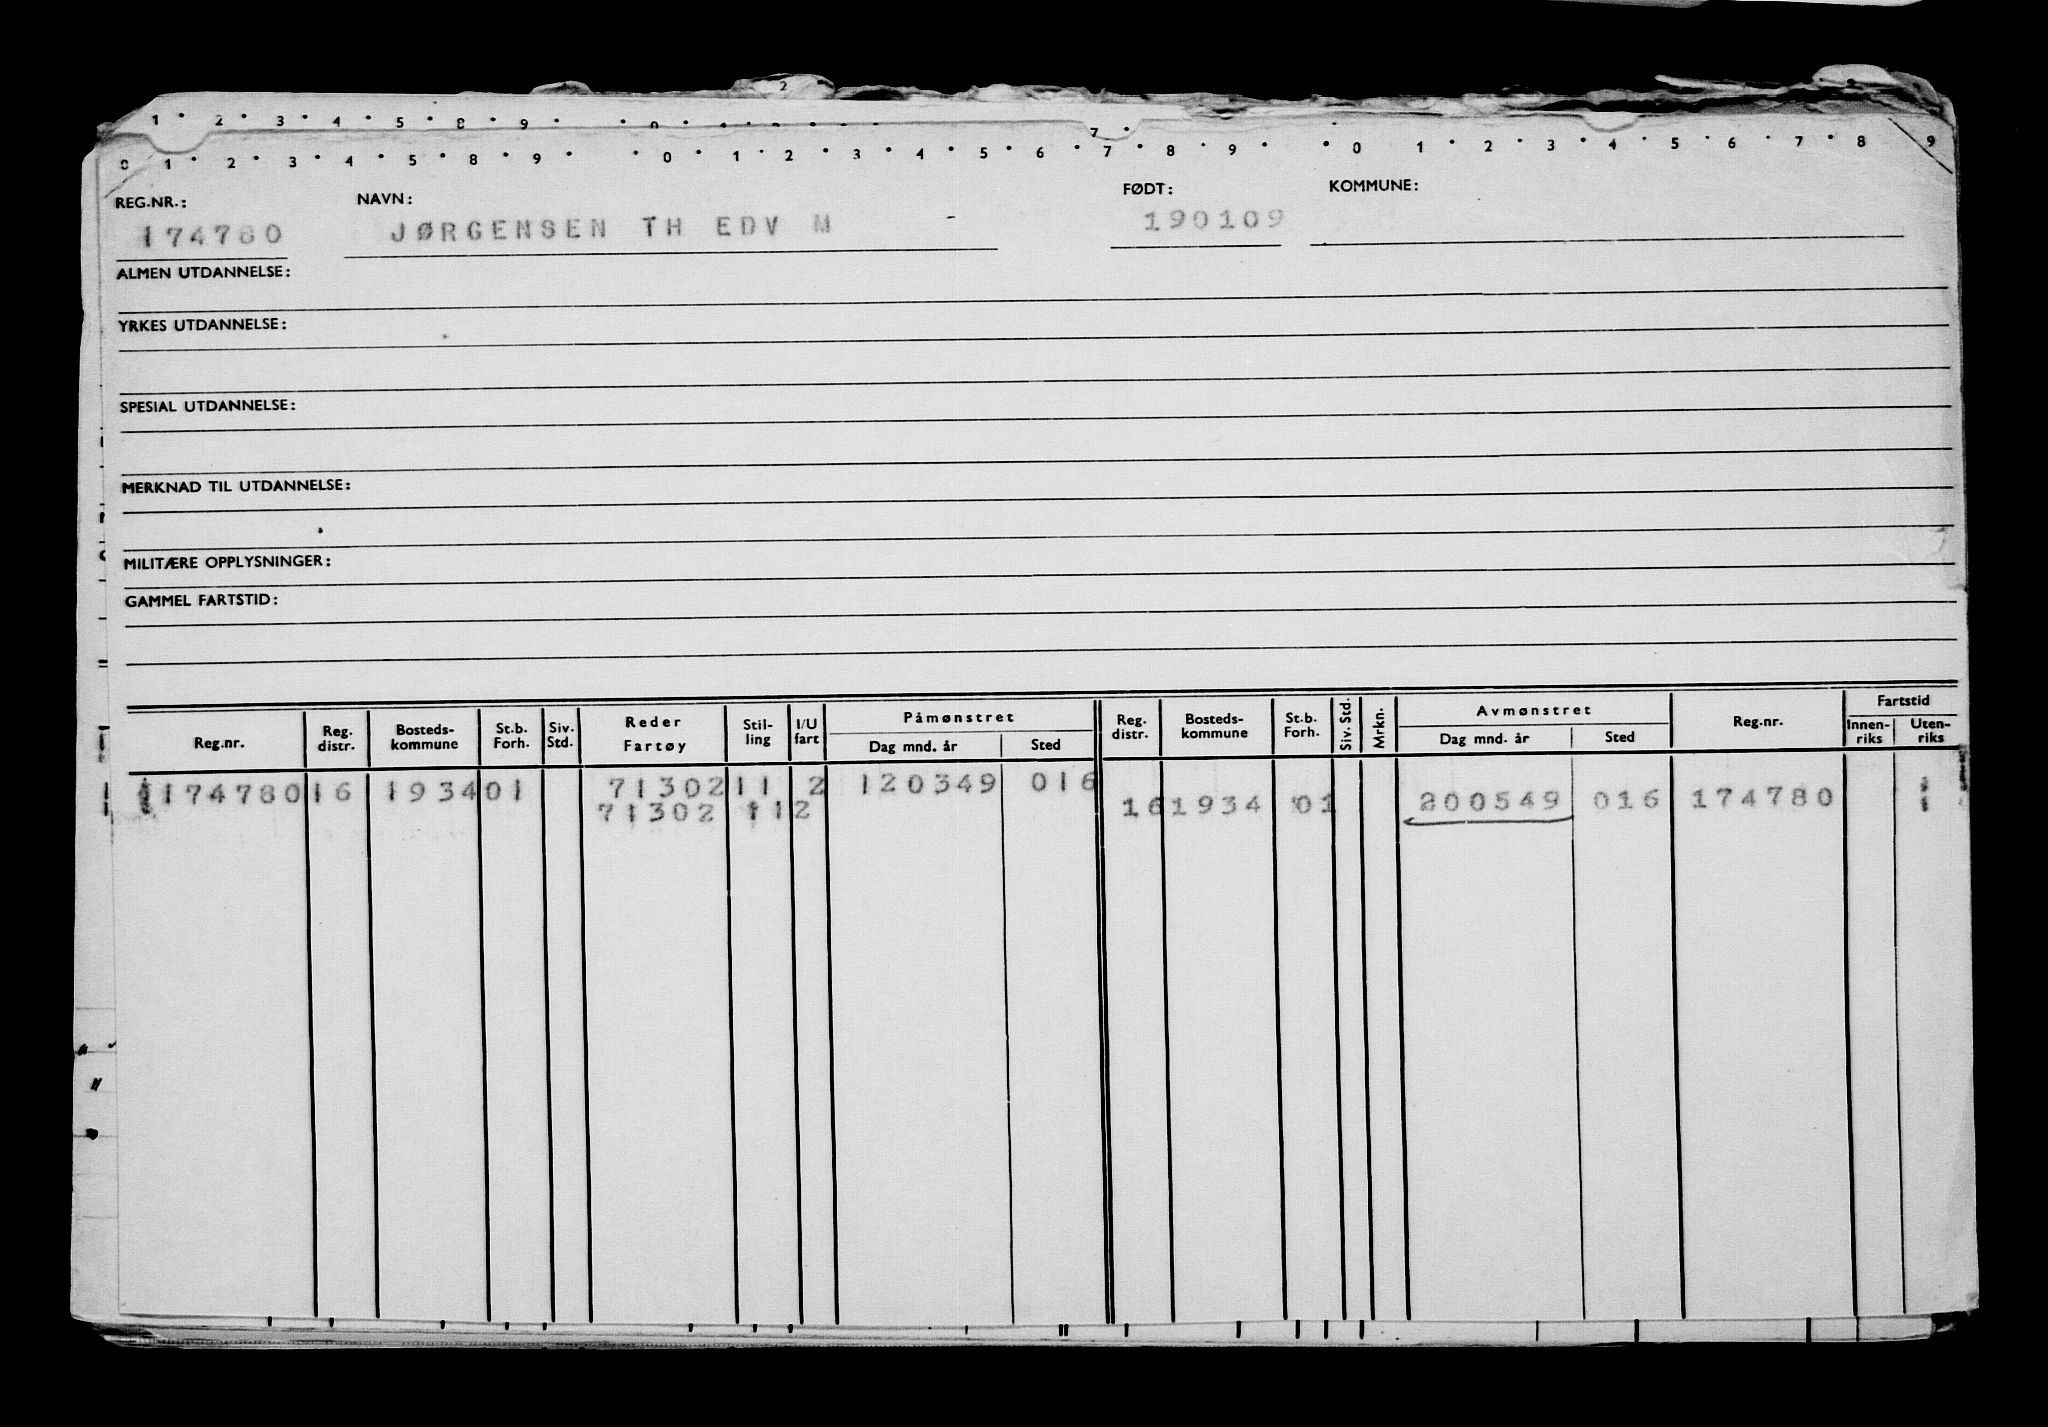 2
1 2 3 4 5 8 9 0 7
0 1 2 3 4 5 8 9 0 1 2 3 4 5 6 7 8 9 0 1 2 3 4 5 6 7 8 9
REG.NR.: NAVN: FØDT: KOMMUNE:
174780 JØRGENSEN TH EDV M - 190109
ALMEN UTDANNELSE:
YRKES UTDANNELSE:
SPESIAL UTDANNELSE:
MERKNAD TIL UTDANNELSE:
MILITÆRE OPPLYSNINGER:
GAMMEL FARTSTID:
Reg.nr. Reg. distr. Bosteds-kommune St.b. Forh. Siv. Std. Reder Fartøy Stil-ling I/U fart Påmønstret Dag mnd. år Sted Reg. distr. Bosteds-kommune St.b. Forh. Siv. Std. Mrkn. Avmønstret Dag mnd. år Sted Reg.nr. Fartstid Innen-riks Uten-riks
174780 16 1934 01 71302 11 2 120349 016
71302 11 2 16 1934 01 200549 016 174780